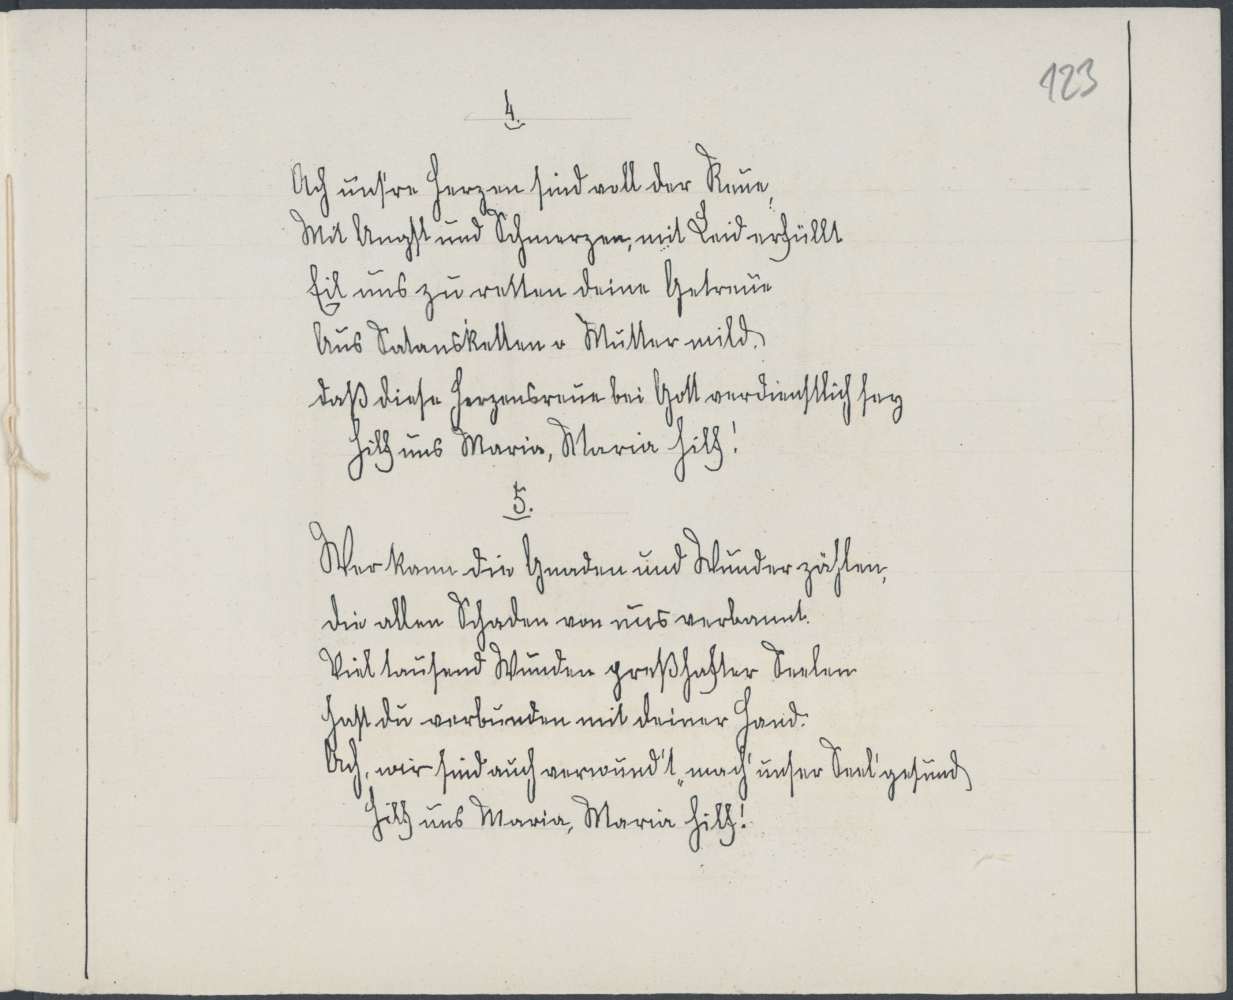 123
4.
Ach uns're Herzen sind voll der Reue,
Mit Angst und Schmerzen, mit Leid erfüllt
Eil uns zu retten deine Getreue
Aus Satansketten o Mutter mild.
daß diese Herzensreue bei Gott verdienstlich sey
Hilf uns Maria, Maria hilf!
5.
Wer kann die Gnaden und Wunder zählen,
die allen Schaden von uns verbannt.
Viel tausend Wunden preßhafter Seelen
hast du verbunden mit deiner Hand.
Ach, wir sind auch verwund't, mach' unser Seel' gesund
Hilf uns Maria, Maria hilf!